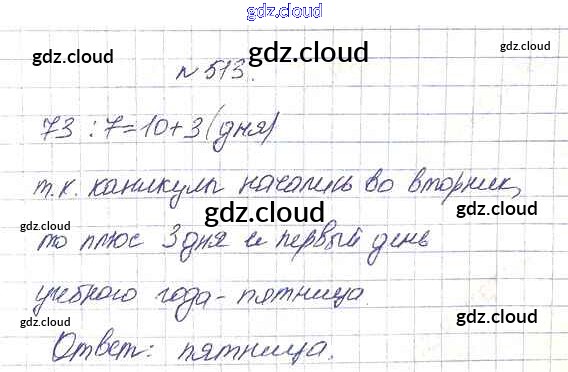 gdz.cloud
gdz.cloud gdz.cloud
№ 513.
73 : 7 = 10 + 3 (дня)
gdz.cloud gdz.cloud
т.к. каникулы начались во вторник,
gdz.cloud
то плюс 3 дня и первый день
gdz.cloud
учебного года - пятница.
gdz.cloud gdz.cloud
Ответ: пятница.
gdz.cloud